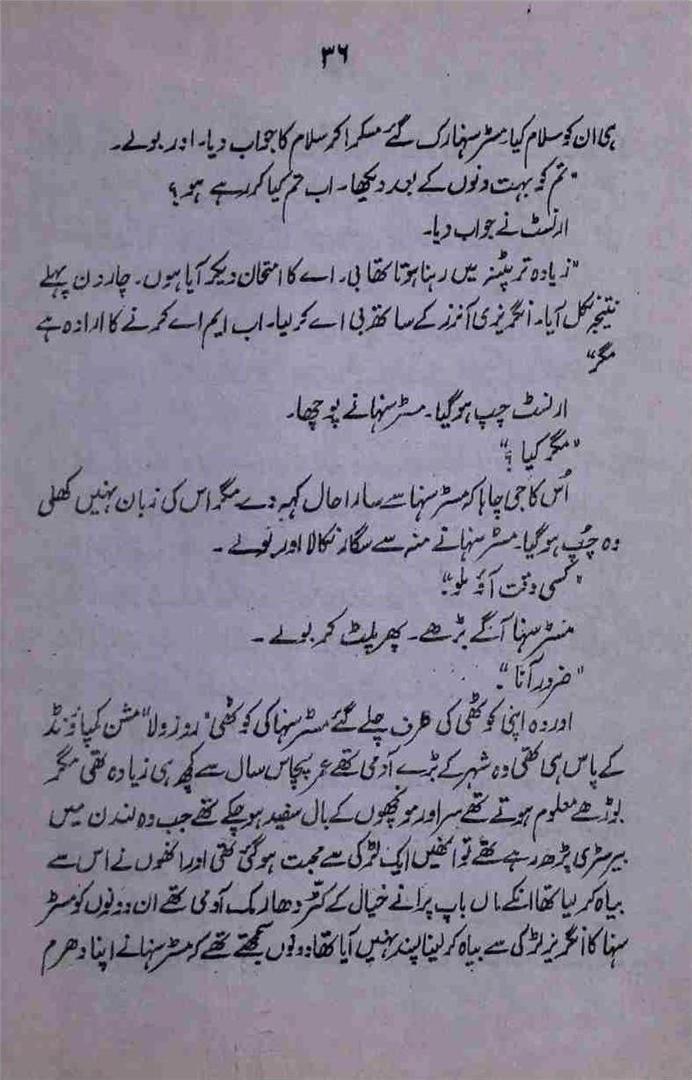 ۳۶
ہی ان کو سلام کیا۔ مسٹر سنہا رک گئے مسکرا کر سلام کا جواب دیا۔ اور بولے۔
"تم کو بہت دنوں کے بعد دیکھا۔ اب تم کیا کر رہے ہو؟
ارنسٹ نے جواب دیا۔
"زیادہ تر پٹنہ میں رہنا ہوتا تھا بی۔ اے کا امتحان دیکر آیا ہوں۔ چار دن پہلے
نتیجہ نکل آیا۔ انگریزی آنرز کے ساتھ بی اے کر لیا۔ اب ایم اے کرنے کا ارادہ ہے
مگر"
ارنسٹ چپ ہو گیا۔ مسٹر سنہا نے پوچھا۔
"مگر کیا؟"
اُس کا جی چاہا کہ مسٹر سنہا سے سارا حال کہہ دے مگر اس کی زبان نہیں کھلی
وہ چُپ ہو گیا۔ مسٹر سنہا نے منہ سے سگار نکالا اور بولے۔
"کسی وقت آؤ ملو۔"
مسٹر سنہا آگے بڑھے۔ پھر پلٹ کر بولے۔
"ضرور آنا"۔
اور وہ اپنی کوٹھی کی طرف چلے گئے مسٹر سنہا کی کوٹھی "روز ولا" مشن کمپاؤنڈ
کے پاس ہی تھی وہ شہر کے بڑے آدمی تھے عمر پچاس سال سے کچھ ہی زیادہ تھی مگر
بوڑھے معلوم ہوتے تھے سر اور مونچھوں کے بال سفید ہو چکے تھے جب وہ لندن میں
بیرسٹری پڑھ رہے تھے تو انھیں ایک لڑکی سے محبت ہو گئی تھی اور انھوں نے اس سے
بیاہ کر لیا تھا انکے ماں باپ پرانے خیال کے کٹر دھارمک آدمی تھے ان دونوں کو مسٹر
سنہا کا انگریز لڑکی سے بیاہ کر لینا پسند نہیں آیا تھا دونوں سمجھتے تھے کہ مسٹر سنہا نے اپنا دھرم